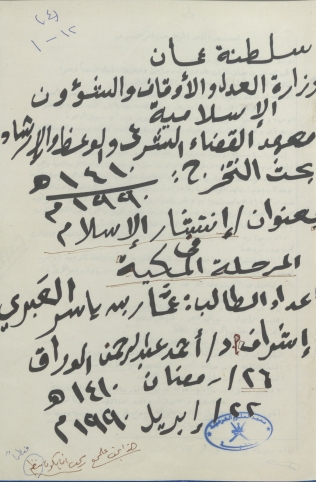 (١٤)
١٢-١
سلطنة عمان
وزارة العدل والأوقاف والشؤون
الإسلامية
معهد القضاء الشرعي والوعظ والإرشاد
بحث التخرج: ١٤١٠ هـ
١٩٩٠ م
بعنوان / إنتشار الإسلام
في
المرحلة المكية
إعداد الطالب: عمار بن ياسر العبري
إشراف د/ أحمد عبدالرحمن الوراق
٢٦ / رمضان ١٤١٠ هـ
٢٢ / إبريل ١٩٩٠ م